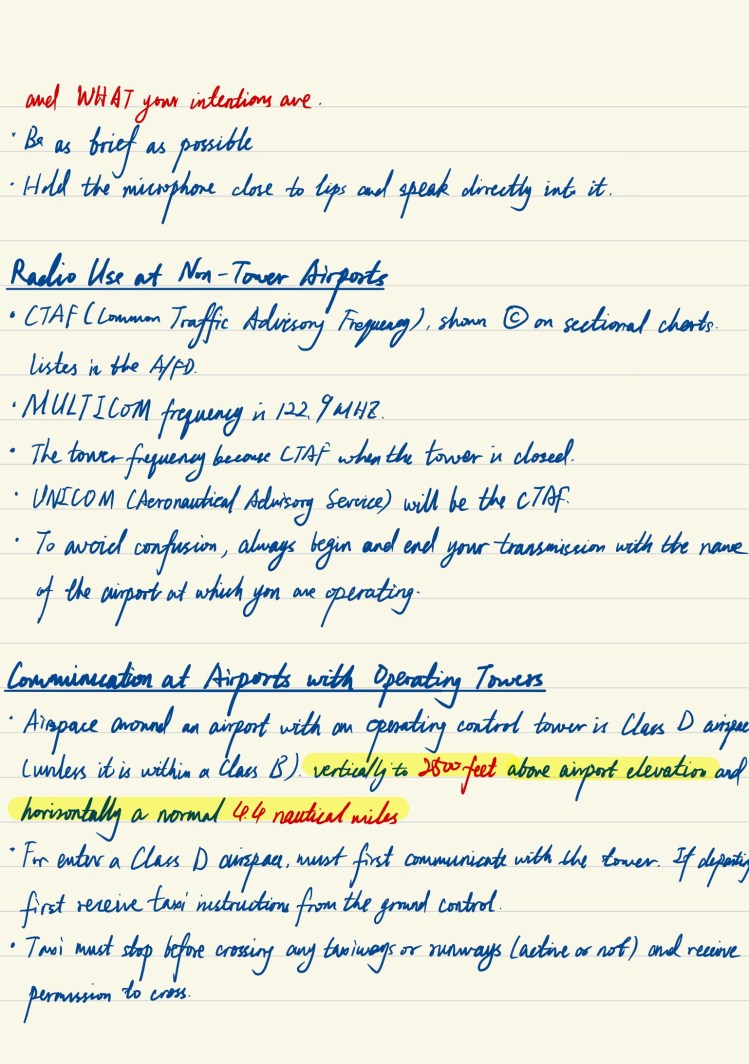 and WHAT your intentions are.
· Be as brief as possible
· Hold the microphone close to lips and speak directly into it.
Radio Use at Non-Tower Airports
· CTAF (Common Traffic Advisory Frequency), shown © on sectional charts.
listes in the A/FD.
· MULTICOM frequency is 122.9 MHZ.
· The tower frequency because CTAF when the tower is closed.
· UNICOM (Aeronautical Advisory Service) will be the CTAF.
· To avoid confusion, always begin and end your transmission with the name
of the airport at which you are operating.
Communication at Airports with Operating Towers
· Airspace around an airport with an operating control tower is Class D airspace
(unless it is within a Class B). vertically to 2500 feet above airport elevation and
horizontally a normal 4.4 nautical miles
· For enter a Class D airspace, must first communicate with the tower. If departing
first receive taxi instructions from the ground control.
· Taxi must stop before crossing any taxiways or runways (active or not) and receive
permission to cross.